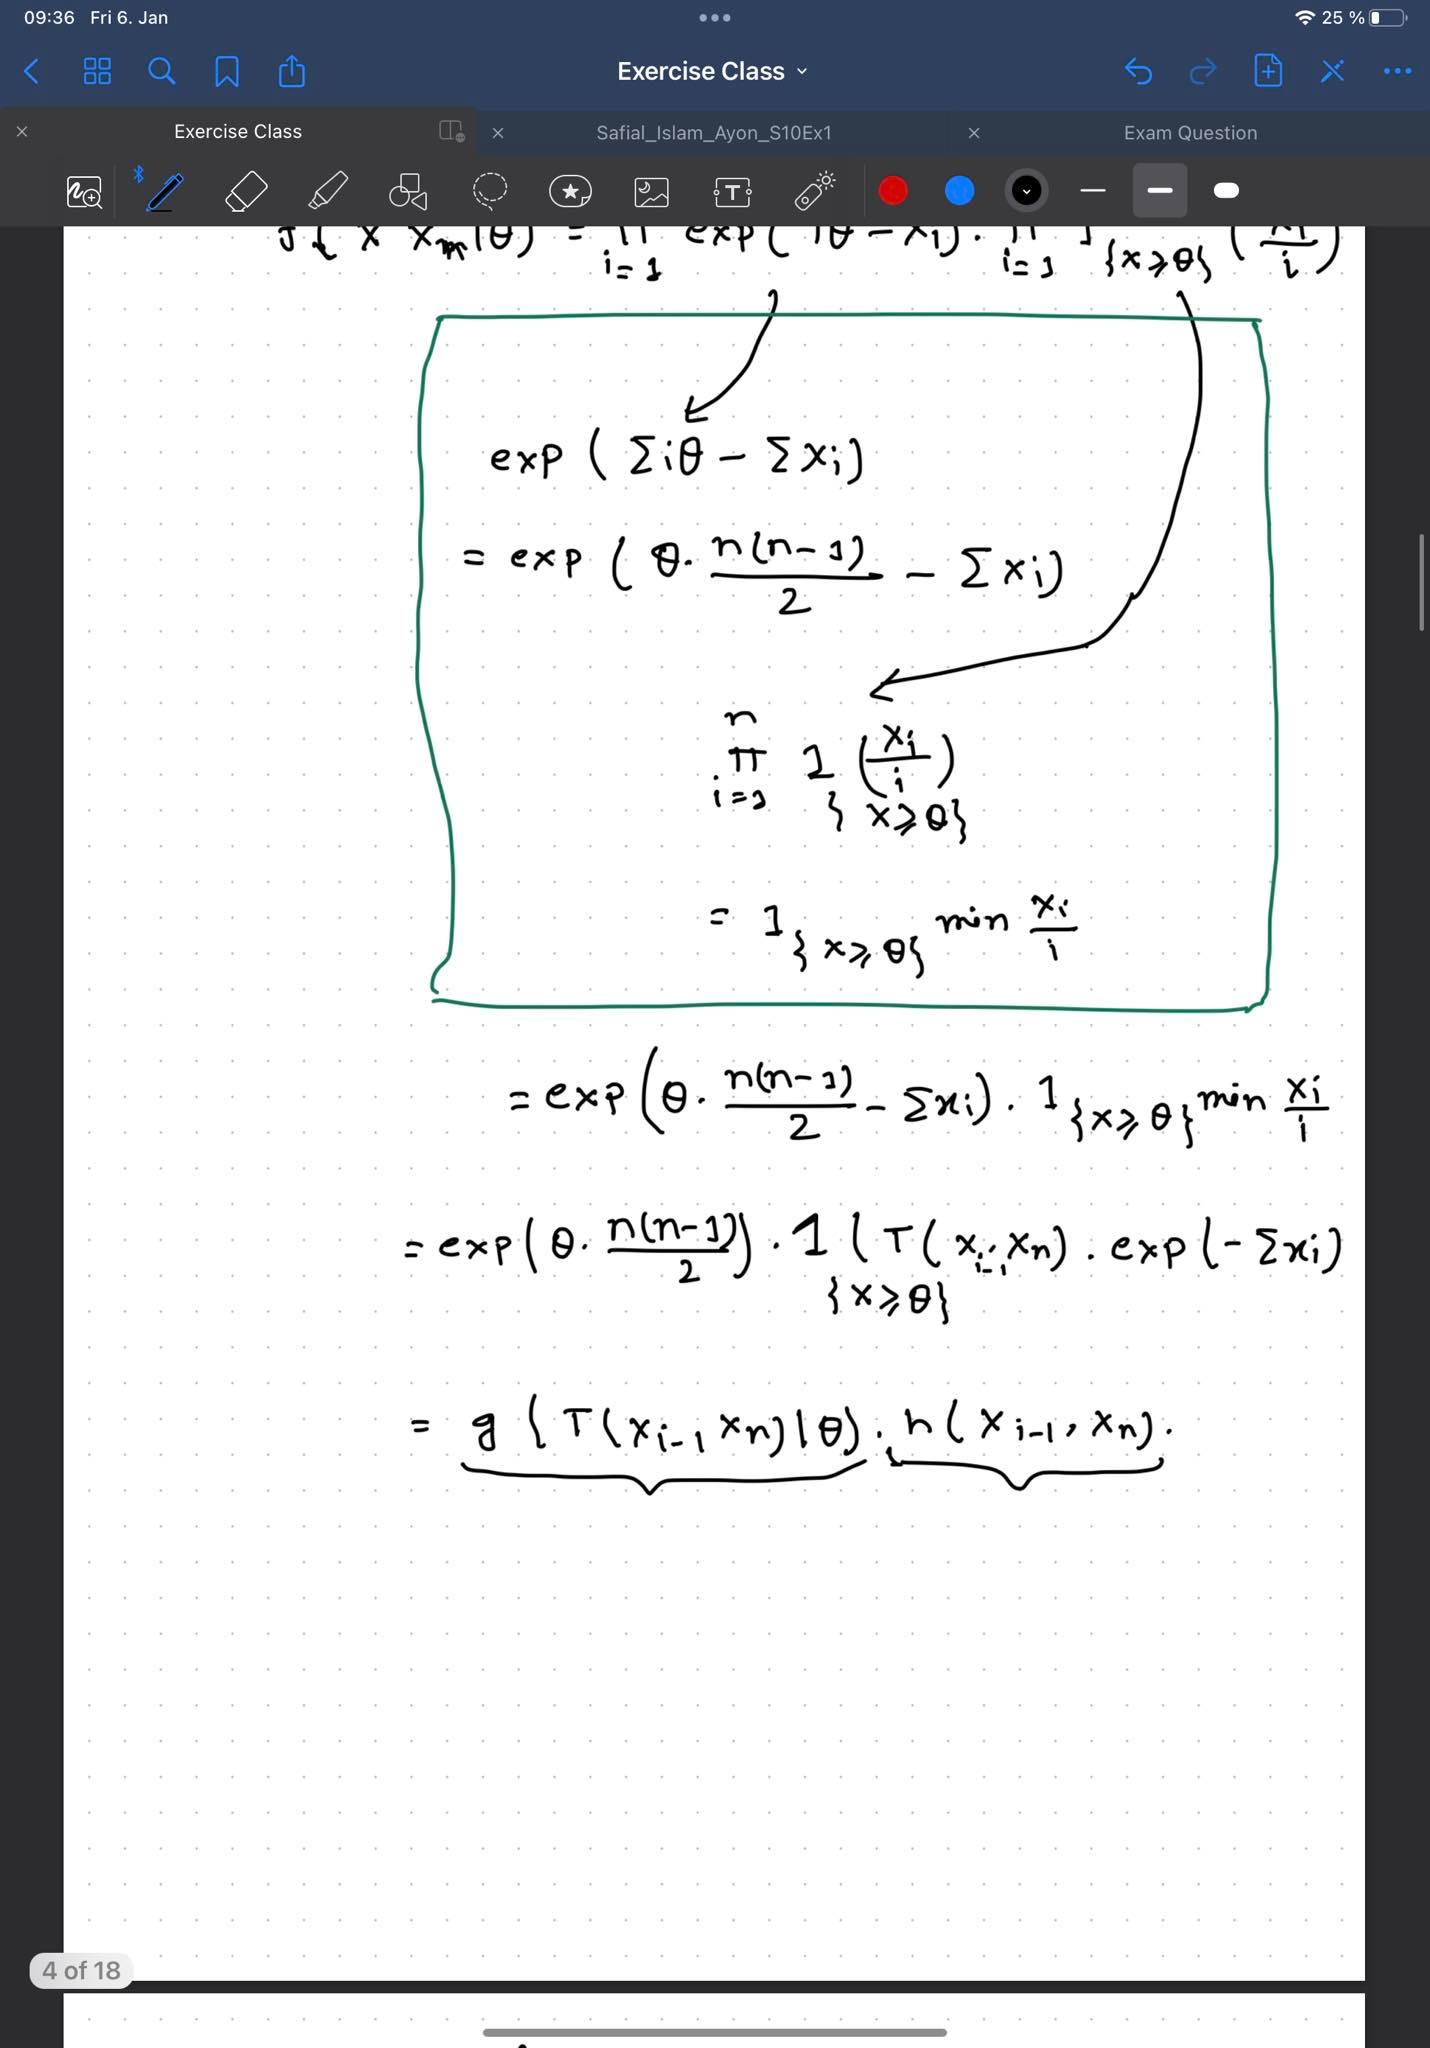 09:36 Fri 6. Jan
25 %
Exercise Class
Exercise Class
Safial_Islam_Ayon_S10Ex1
Exam Question
T
x x_m|θ) = Π exp(iθ - x_i). Π 1 (x_i/i)
i=1 i=1 {x≥θ}
exp (Σiθ - Σx_i)
= exp (θ. n(n-1)/2 - Σx_i)
n
Π 1 (x_i/i)
i=1 {x≥θ}
= 1_{x≥θ} min x_i/i
= exp(θ. n(n-1)/2 - Σx_i). 1_{x≥θ} min x_i/i
= exp(θ. n(n-1)/2). 1 (T(x_{i-1}, x_n). exp(-Σx_i)
{x≥θ}
= g (T(x_{i-1}, x_n)|θ). h(x_{i-1}, x_n).
4 of 18